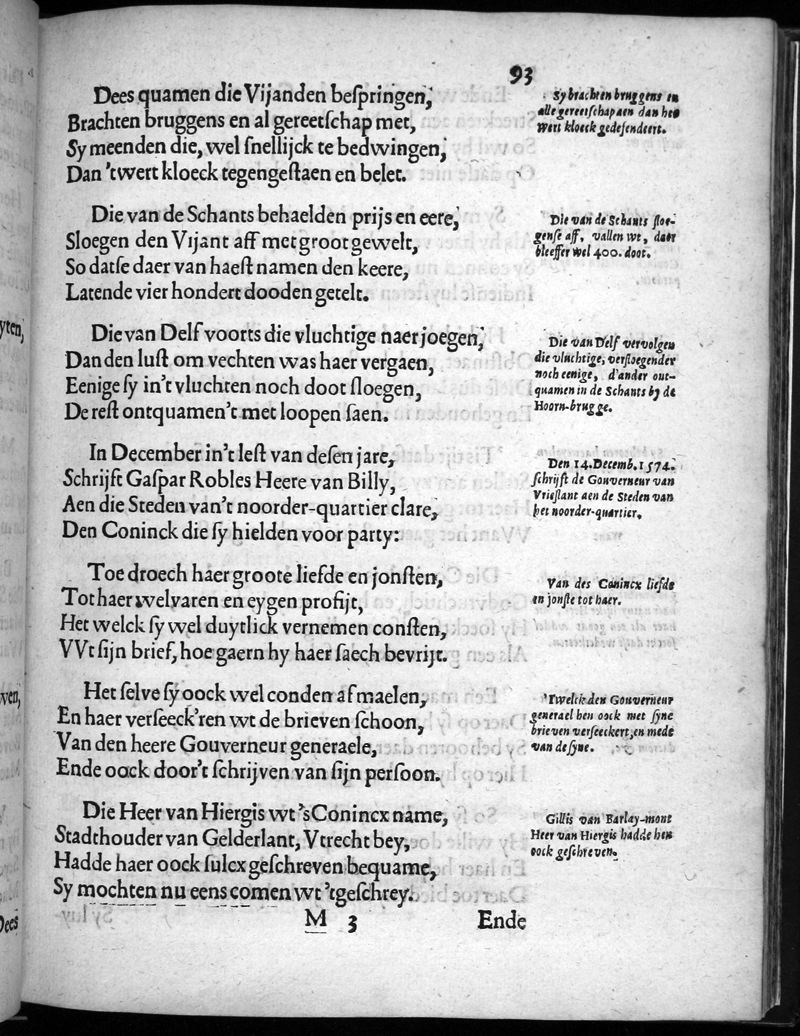 93
Dees quamen die Vijanden beſpringen,
Brachten bruggens en al gereetſchap met,
Sy meenden die, wel ſnellijck te bedwingen,
Dan 'twert kloeck tegengeſtaen en belet.
Sy brachten bruggens en
alle gereetſchap aen dan het
wert kloeck gedefendeert.
Die van de Schants behaelden prijs en eere,
Sloegen den Vijant aff met groot gewelt,
So datſe daer van haeſt namen den keere,
Latende vier hondert dooden getelt.
Die van de Schants ſloe-
genſe aff, vallen wt, daer
bleeffer wel 400. doot.
Die van Delf voorts die vluchtige naer joegen,
Dan den luſt om vechten was haer vergaen,
Eenige ſy in't vluchten noch doot ſloegen,
De reſt ontquamen't met loopen ſaen.
Die van Delf vervolgen
die vluchtige, verſloegender
noch eenige, d'ander ont-
quamen in de Schants bj de
Hoorn-brugge.
In December in't leſt van deſen jare,
Schrijft Gaſpar Robles Heere van Billy,
Aen die Steden van't noorder-quartier clare,
Den Coninck die ſy hielden voor party:
Den 14. Decemb. 1574.
ſchrijft de Gouverneur van
Vrieſlant aen de Steden van
het noorder-quartier.
Toe droech haer groote liefde en jonſten,
Tot haer welvaren en eygen profijt,
Het welck ſy wel duytlick vernemen conſten,
VVt ſijn brief, hoe gaern hy haer ſaech bevrijt.
Van des Conincx liefde
en jonſte tot haer.
Het ſelve ſy oock wel conden af maelen,
En haer verſeeck'ren wt de brieven ſchoon,
Van den heere Gouverneur generaele,
Ende oock door't ſchrijven van ſijn perſoon.
'Twelck den Gouverneur
generael hen oock met ſyne
brieven verſeeckert, en mede
van deſyne.
Die Heer van Hiergis wt 'sConincx name,
Stadthouder van Gelderlant, Vtrecht bey,
Hadde haer oock ſulcx geſchreven bequame,
Sy mochten nu eens comen wt 'tgeſchrey.
Gillis van Barlay-mont
Heer van Hiergis hadde hen
oock geſchreven.
M 3
Ende